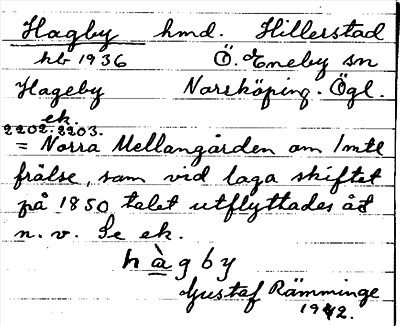 Hagby hmd. Hillerstad
hb 1936 Ö. Eneby sn
Hageby Norrköping. Ögl.
ek.
2202. 2203.
= Norra Mellangården om 1 mtl
frälse, som vid laga skiftet
på 1850 talet utflyttades åt
n. v. Se ek.
hàgby
Gustaf Rämminge
1942.